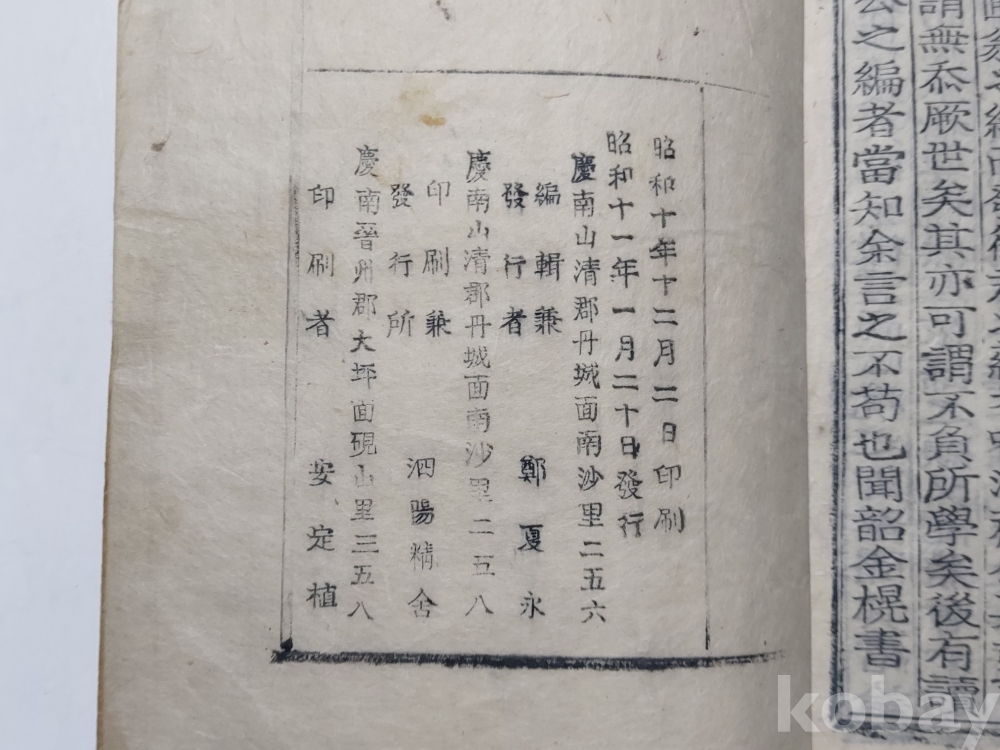 謂無忝厥世矣其亦可謂不負所學矣後有讀
公之編者當知余言之不苟也聞韶金榥書
昭和十年十二月二日印刷
昭和十一年一月二十日發行
慶南山清郡丹城面南沙里二五六
編輯兼
發行者 鄭夏永
慶南山清郡丹城面南沙里二五八
印刷兼
發行所 泗陽精舍
慶南晉州郡大坪面硯山里三五八
印刷者 安定植
kobay